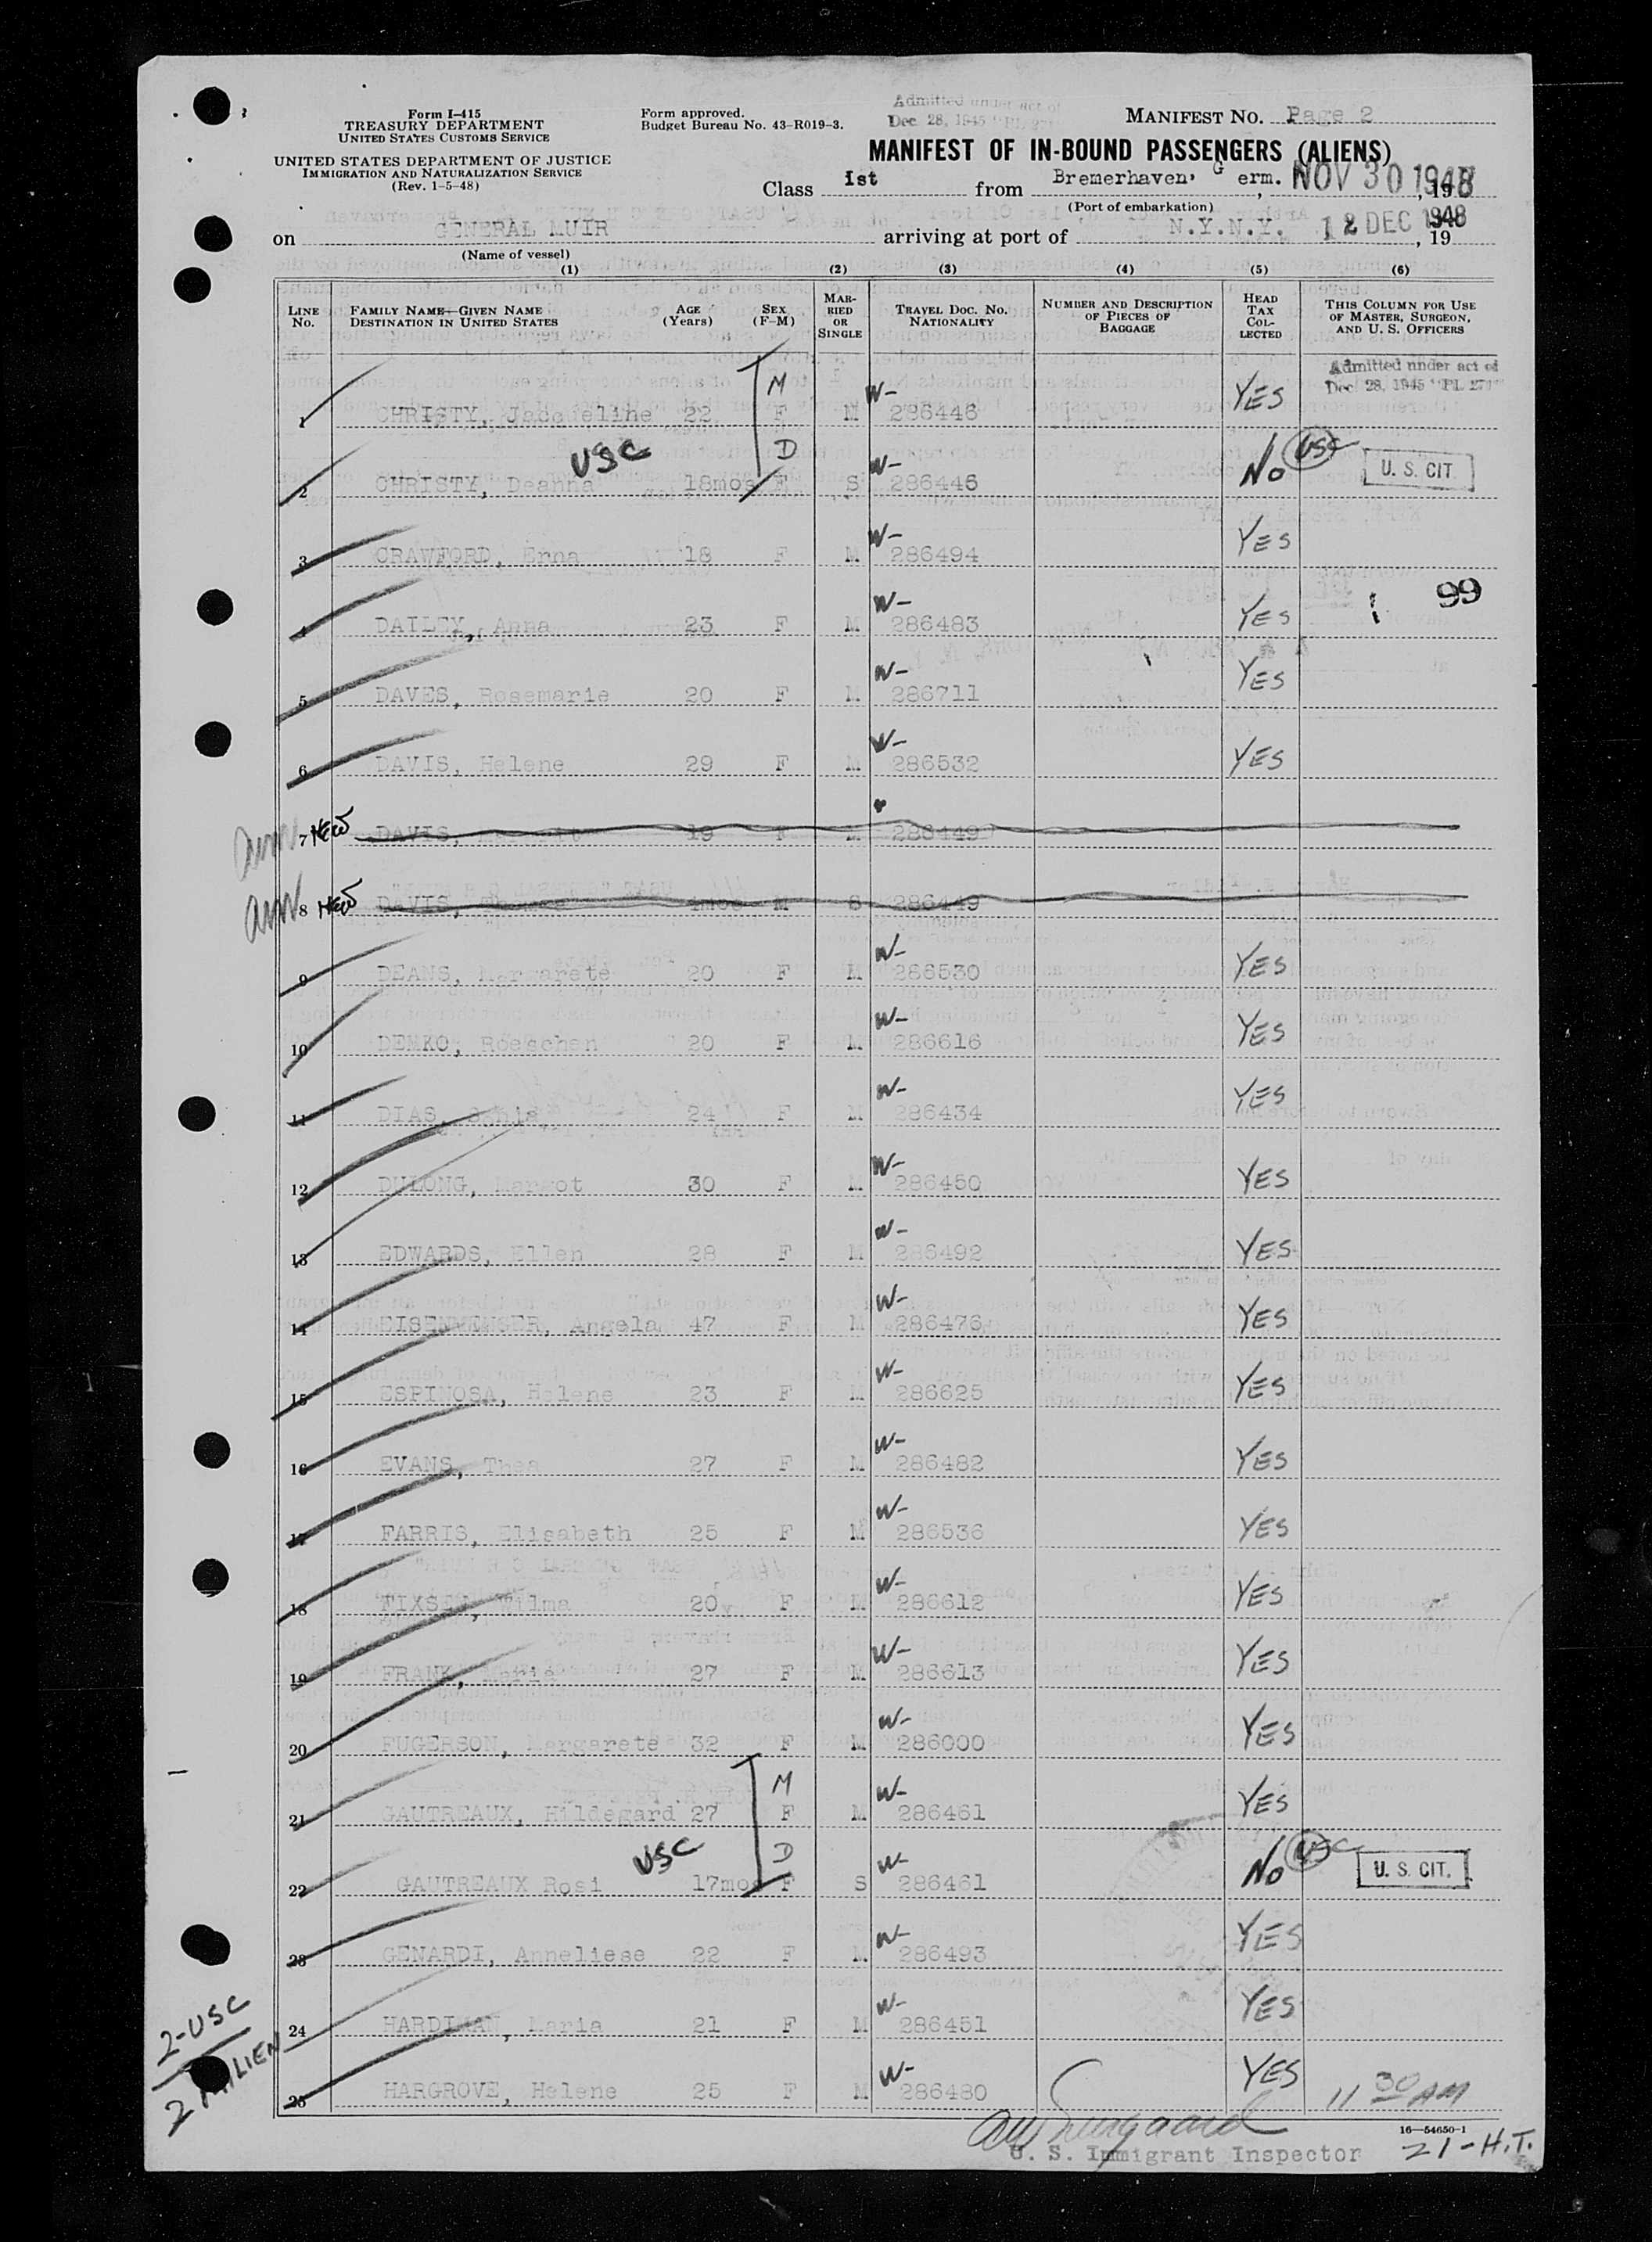 Form I-415
TREASURY DEPARTMENT
UNITED STATES CUSTOMS SERVICE
UNITED STATES DEPARTMENT OF JUSTICE
IMMIGRATION AND NATURALIZATION SERVICE
(Rev. 1-5-48)
Form approved.
Budget Bureau No. 43-R019-3.
Admitted under act of
Dec. 28, 1945 "PL 271"
MANIFEST NO. Page 2
MANIFEST OF IN-BOUND PASSENGERS (ALIENS)
Class 1st from Bremerhaven, Germ. NOV 30 1948, 19
(Port of embarkation)
on GENERAL MUIR arriving at port of N.Y.N.Y. 12 DEC 1948, 19
(Name of vessel)
(1) (2) (3) (4) (5) (6)
LINE No. FAMILY NAME—GIVEN NAME DESTINATION IN UNITED STATES AGE (Years) SEX (F-M) MARRIED OR SINGLE TRAVEL DOC. NO. NATIONALITY NUMBER AND DESCRIPTION OF PIECES OF BAGGAGE HEAD TAX COLLECTED THIS COLUMN FOR USE OF MASTER, SURGEON, AND U. S. OFFICERS
Admitted under act of
Dec. 28, 1945 "PL 271"
1 CHRISTY, Jacqueline 22 M F M W- 286446 YES
2 CHRISTY, Deanna USC 18mos D F S W- 286446 No USC U. S. CIT
3 CRAWFORD, Erna 18 F M W- 286494 YES
99
4 DAILEY, Anna 23 F M W- 286483 YES
5 DAVES, Rosemarie 20 F M W- 286711 YES
6 DAVIS, Helene 29 F M W- 286532 YES
7 NEW DAVIS, 19 F M 286449
8 NEW DAVIS, M S 286449
9 DEANS, Margarete 20 F M W- 286530 YES
10 DEMKO, Roeschen 20 F M W- 286616 YES
11 DIAS, 24 F M W- 286434 YES
12 DULONG, Margot 30 F M W- 286450 YES
13 EDWARDS, Ellen 28 F M W- 286492 YES
14 Angela 47 F M W- 286476 YES
15 ESPINOSA, Helene 23 F M W- 286625 YES
16 EVANS, Thea 27 F M W- 286482 YES
17 FARRIS, Elisabeth 25 F M W- 286536 YES
18 Wilma 20 F M W- 286612 YES
19 FRANK, Maria 27 F M W- 286613 YES
20 FUGERSON, Margarete 32 F M W- 286000 YES
21 GAUTREAUX, Hildegard 27 M F M W- 286461 YES
22 GAUTREAUX Rosi USC 17mos D F S W- 286461 No USC U. S. CIT.
23 GENARDI, Anneliese 22 F M W- 286493 YES
24 HARDIMAN, Maria 21 F M W- 286451 YES
25 HARGROVE, Helene 25 F M W- 286480 YES
2-USC
2 ALIEN
11 30 AM
U. S. Immigrant Inspector
16—54650-1
21-H.T.